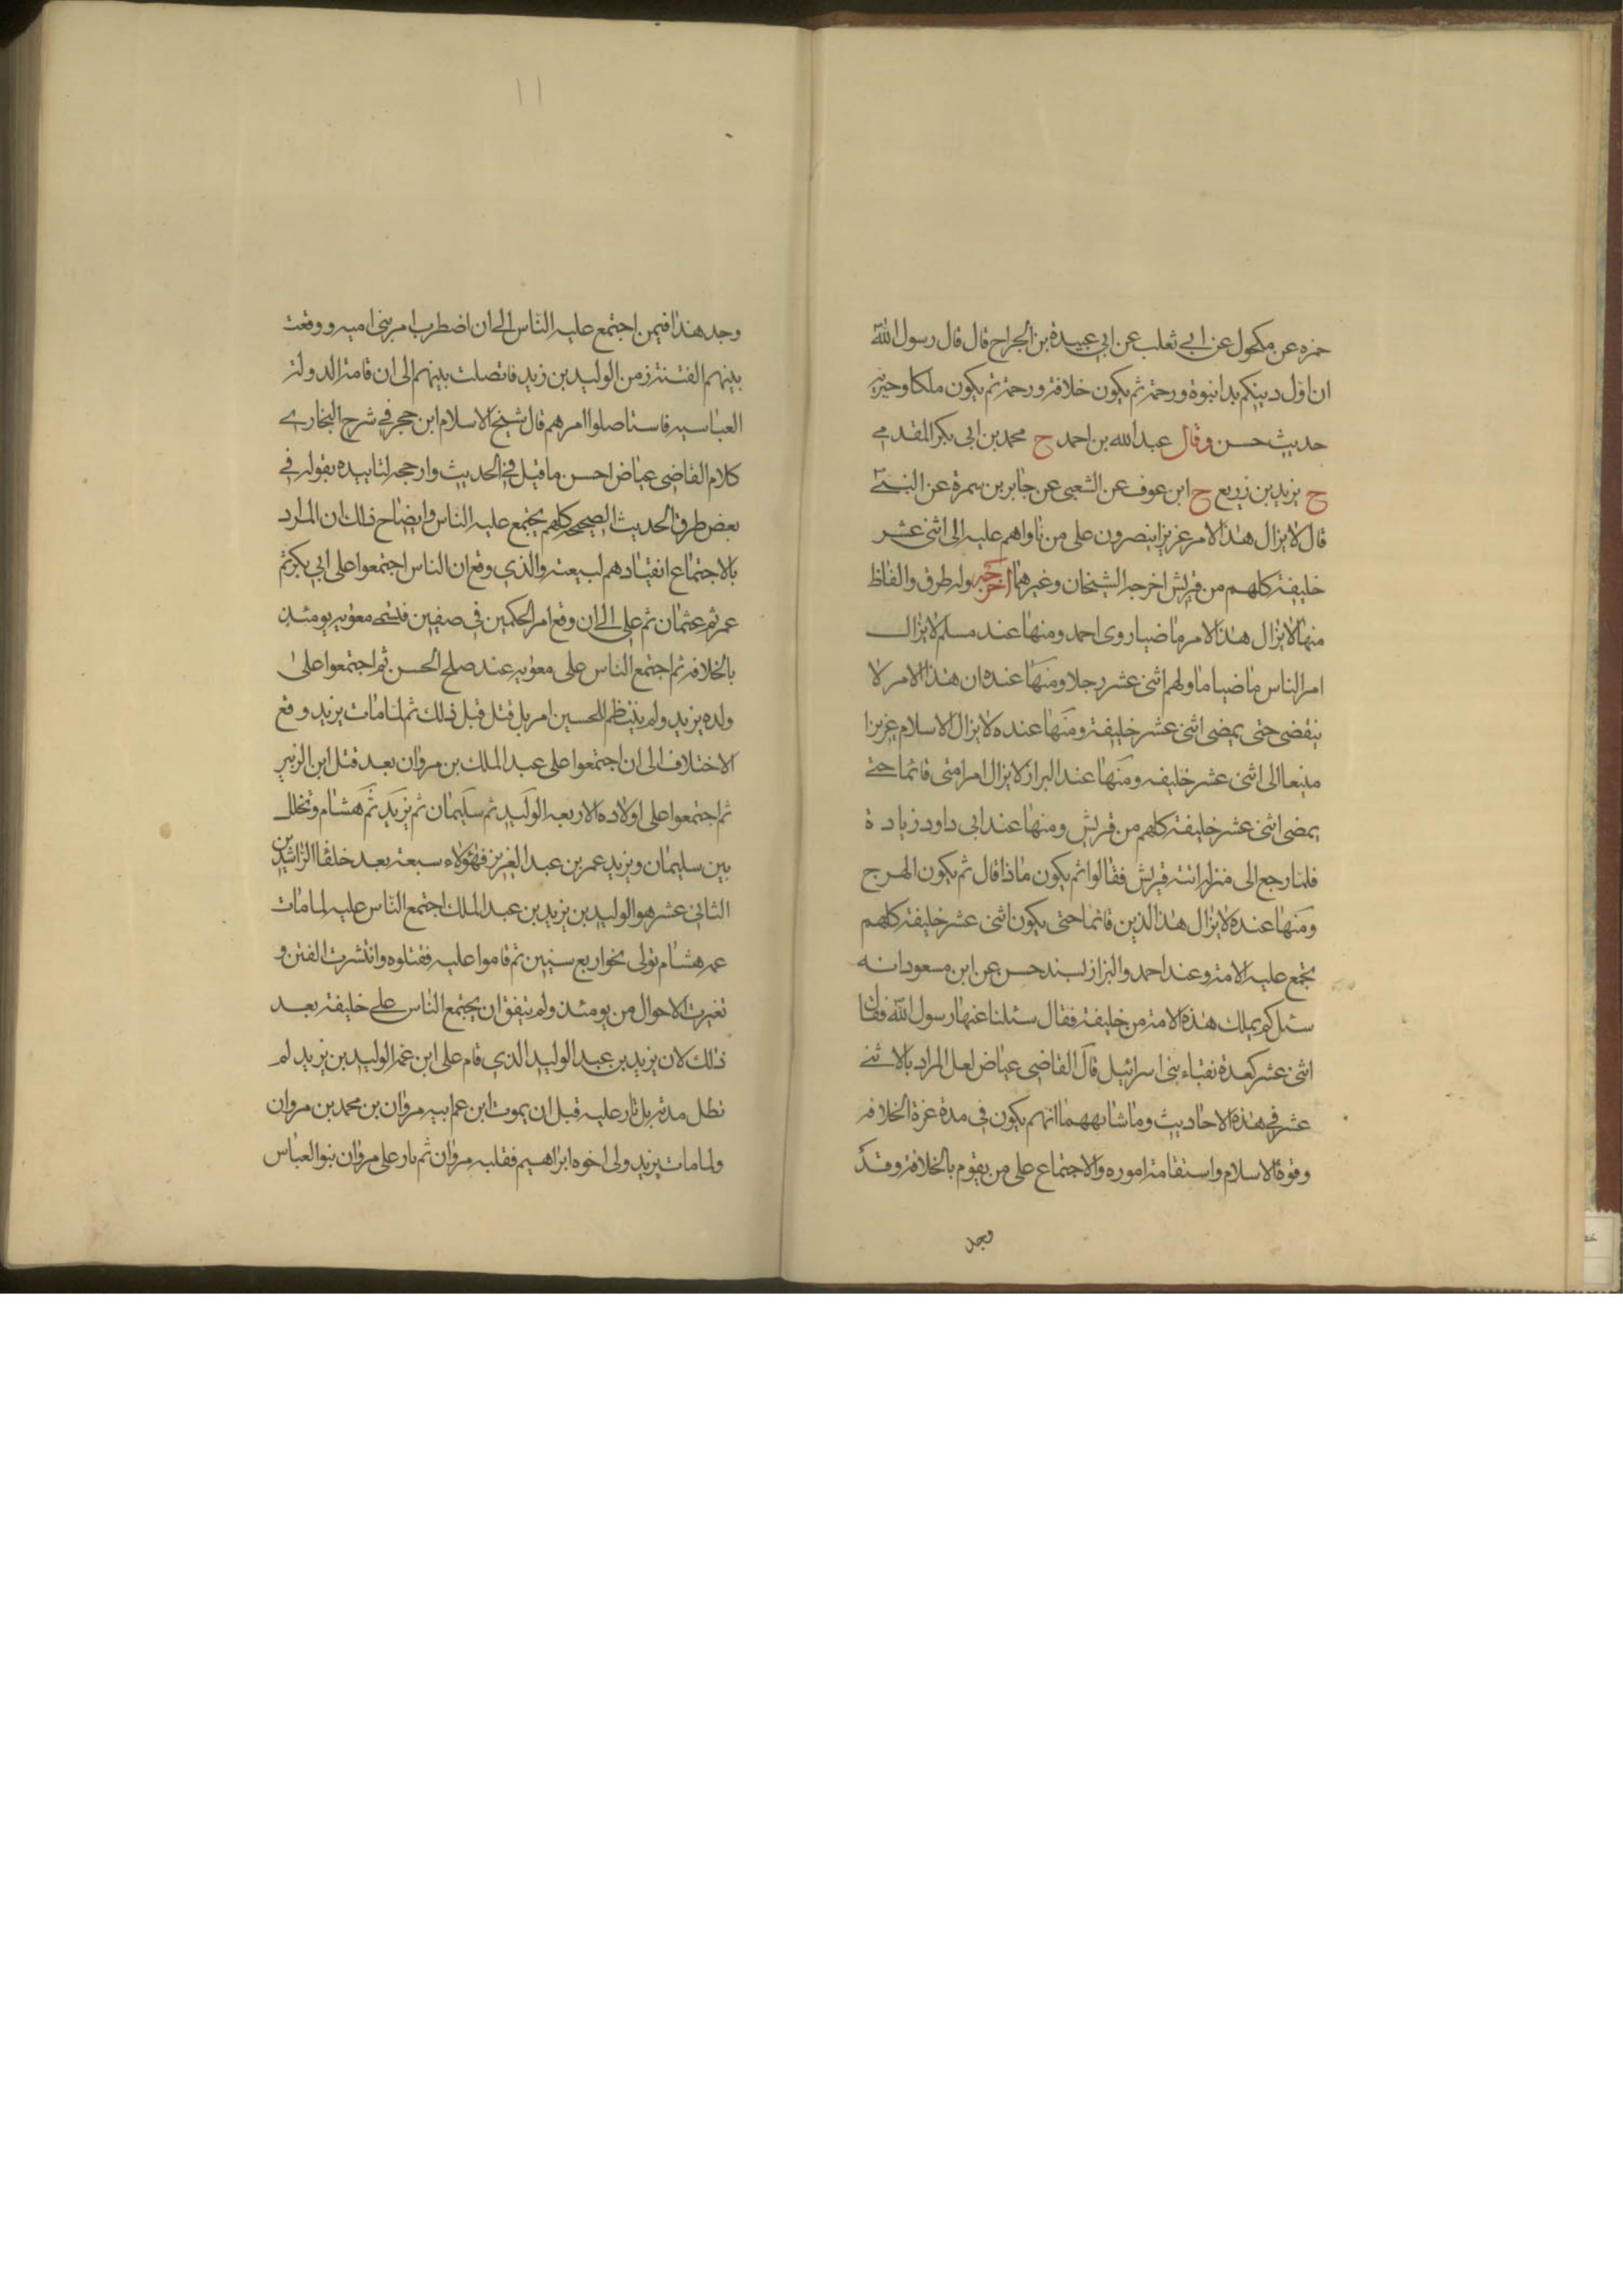 حمزه عن مكحول عن ابي ثعلب عن ابي عبيدة بن الجراح قال قال رسول الله
ان اول دينكم بدا نبوة ورحمة ثم يكون خلافة ورحمة ثم يكون ملكا وجبرية
حديث حسن وقال عبد الله بن احمد ح محمد بن ابي بكر المقدمي
ح يزيد بن زريع ح ابن عوف عن الشعبي عن جابر بن سمرة عن النبي
قال لا يزال هذا الامر عزيزا ينصرون على من ناواهم عليه الى اثني عشر
خليفة كلهم من قريش اخرجه الشيخان وغيرهما اخرجه وله طرق والفاظ
منها لا يزال هذا الامر ماضيا روى احمد ومنها عند مسلم لا يزال
امر الناس ماضيا ما ولهم اثني عشر رجلا ومنها عنده ان هذا الامر لا
ينقضى حتى يمضى اثنى عشر خليفة ومنها عنده لا يزال الاسلام عزيزا
منيعا الى اثنى عشر خليفه ومنها عند البزار لا يزال امر امتى قائما حتى
يمضى اثنى عشر خليفة كلهم من قريش ومنها عند ابى داود زيادة
فلما رجع الى منزله اتته قريش فقالوا ثم يكون ماذا قال ثم يكون الهرج
ومنها عنده لا يزال هذا الدين قائما حتى يكون اثنى عشر خليفة كلهم
تجمع عليه الامة وعند احمد والبزاز بسند حسن عن ابن مسعود انه
سئل كم يملك هذه الامة من خليفة فقال سئلنا عنها رسول الله فقال
اثنى عشر كعدة نقباء بنى اسرائيل قال القاضى عياض لعل المراد بالاثنى
عشر في هذه الاحاديث وما شابههما انهم يكون في مدة عزة الخلافه
وقوة الاسلام واستقامة اموره والاجتماع على من يقوم بالخلافة وقد
وجد
١١
وجد هذا فيمن اجتمع عليه الناس الى ان اضطرب امر بني اميه ووقعت
بينهم الفتنة زمن الوليد بن زيد فاتصلت بينهم الى ان قامة الدولة
العباسيه فاستاصلوا امرهم قال شيخ الاسلام ابن حجر في شرح البخاري
كلام القاضي عياض احسن ما قيل في الحديث وارجحه لتاييده بقوله في
بعض طرق الحديث الصحيح كلهم يجتمع عليه الناس وايضاح ذلك ان المراد
بالاجتماع انقيادهم لبيعته والذي وقع ان الناس اجتمعوا على ابي بكر ثم
عمر ثم عثمان ثم على الى ان وقع امر الحكمين في صفين فتسمى معويه يومئذ
بالخلافه ثم اجتمع الناس على معويه عند صلح الحسن ثم اجتمعوا على
ولده يزيد ولم ينتظم للحسين امر بل قتل قبل ذلك ثم لما مات يزيد وقع
الاختلاف الى ان اجتمعوا على عبد الملك بن مروان بعد قتل ابن الزبير
ثم اجتمعوا على اولاده الاربعه الوليد ثم سليمان ثم يزيد ثم هشام وتخلل
بين سليمان ويزيد عمر بن عبد العزيز فهؤلاء سبعة بعد خلفا الراشدين
الثاني عشر هو الوليد بن يزيد بن عبد الملك اجتمع الناس عليه لما مات
عمه هشام تولى نحو اربع سنين ثم قاموا عليه فقتلوه وانتشرت الفتن و
تغيرت الاحوال من يومئذ ولم يتفق ان يجتمع الناس على خليفة بعد
ذلك لان يزيد بن عبد الوليد الذي قام على ابن عمه الوليد بن يزيد لم
تطل مدته بل ثار عليه قبل ان يموت ابن عم ابيه مروان بن محمد بن مروان
ولما مات يزيد ولى اخوه ابراهيم فقلبه مروان ثم ثار على مروان بنوا العباس